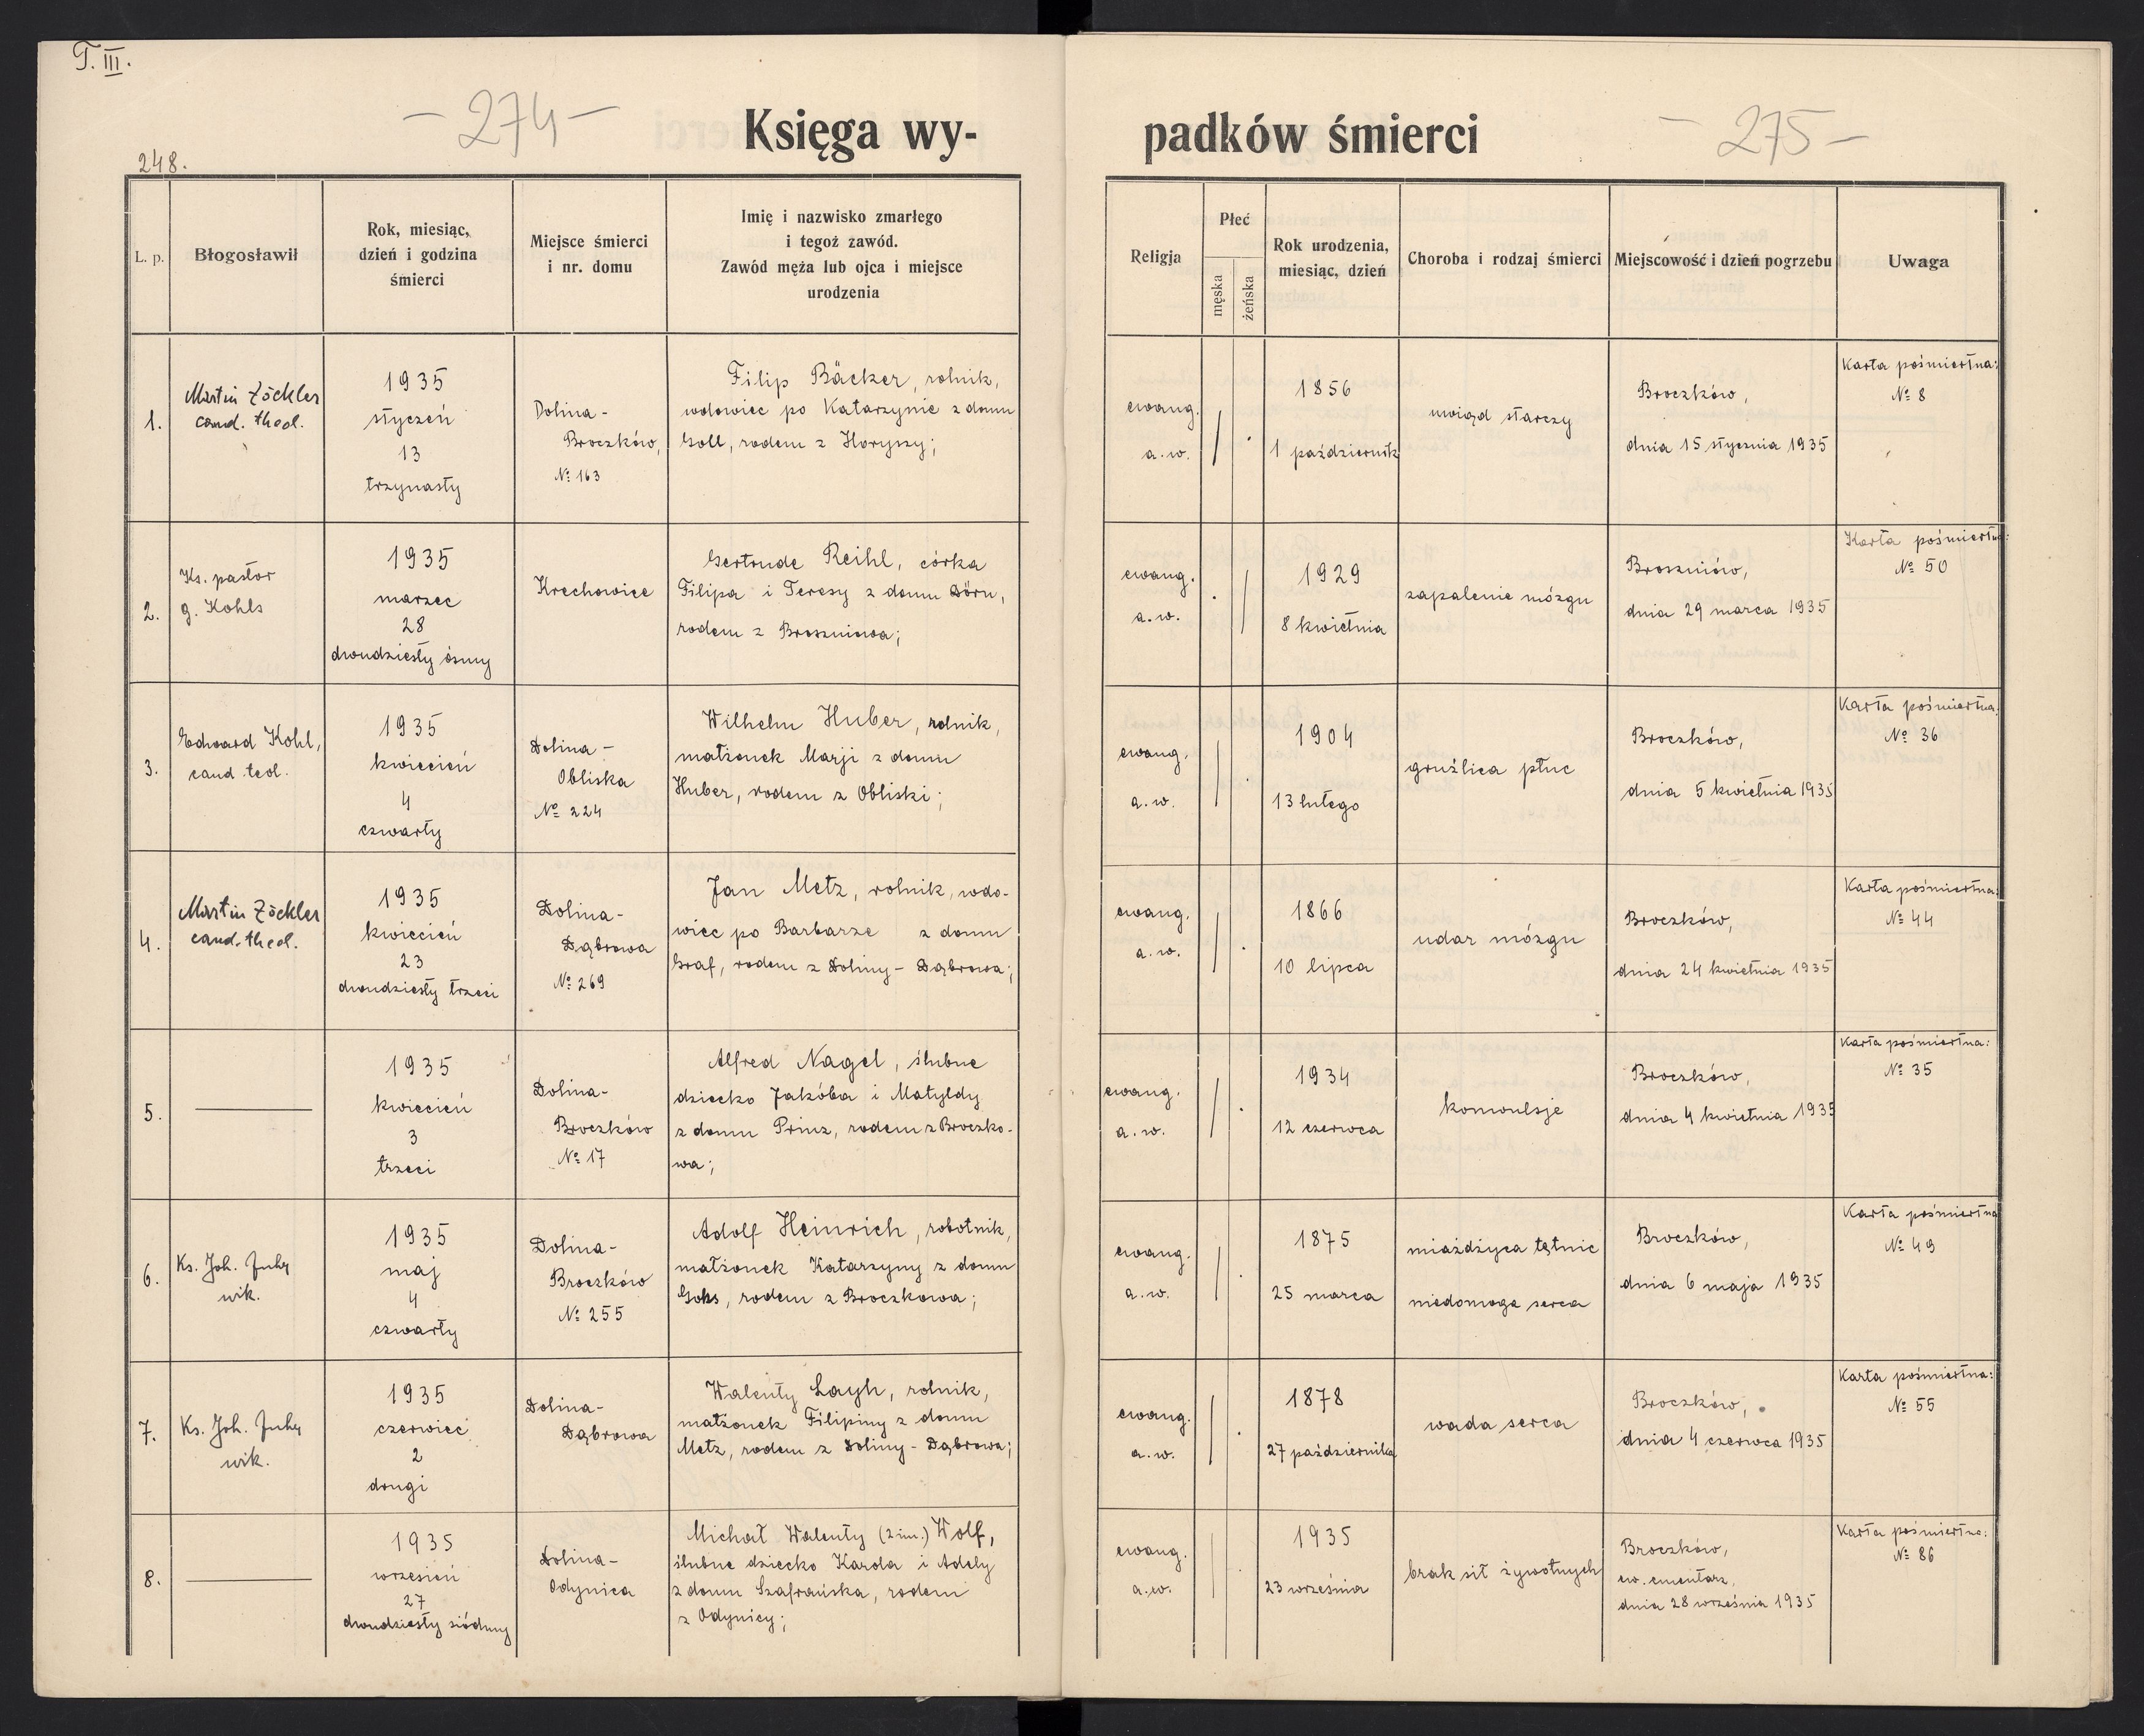 T. III.
– 274 –
248.
Księga wy-
L. p.
Błogosławił
Rok, miesiąc,
dzień i godzina
śmierci
Miejsce śmierci
i nr. domu
Imię i nazwisko zmarłego
i tegoż zawód.
Zawód męża lub ojca i miejsce
urodzenia
1.
Martin Zöckler
cand. theol.
1935
styczeń
13
trzynasty
Dolina-
Broczków,
№ 163
Filip Bäcker, rolnik,
wdowiec po Katarzynie z domu
Goll, rodem z Horyszy;
2.
Ks. pastor
g. Kohls
1935
marzec
28
dwudziesty ósmy
Krechowice
Gertrude Reihl, córka
Filipa i Teresy z domu Dörn,
rodem z Broszniowa;
3.
Edward Kohl,
cand. teol.
1935
kwiecień
4
czwarty
Dolina –
Obliska
№ 224
Wilhelm Huber, rolnik,
małżonek Marji z domu
Huber, rodem z Obliski;
4.
Martin Zöckler
cand. theol.
1935
kwiecień
23
dwudziesty trzeci
Dolina-
Dąbrowa
№ 269
Jan Metz, rolnik, wdo-
wiec po Barbarze z domu
Graf, rodem z Doliny – Dąbrowa;
5.
1935
kwiecień
3
trzeci
Dolina-
Broczków
№ 17
Alfred Nagel, ślubne
dziecko Jakóba i Matyldy
z domu Prinz, rodem z Broczko-
wa;
6.
Ks. Joh.
wik.
1935
maj
4
czwarty
Dolina-
Broczków
№ 255
Adolf Heinrich, robotnik,
małżonek Katarzyny z domu
rodem z Broczkowa;
7.
Ks. Joh.
wik.
1935
czerwiec
2
drugi
Dolina-
Dąbrowa
Walenty Layh, rolnik,
małżonek Filipiny z domu
Metz, rodem z Doliny – Dąbrowa;
8.
1935
wrzesień
27
dwudziesty siódmy
Dolina-
Odynica
Michał Walenty (2 im.) Wolf,
ślubne dziecko Karola i Adely
z domu Szafrańska, rodem
z Odynicy;
padków śmierci
– 275 –
Religja
Płeć
męska
żeńska
Rok urodzenia,
miesiąc, dzień
Choroba i rodzaj śmierci
Miejscowość i dzień pogrzebu
Uwaga
ewang.
a. w.
1856
1 październik
uwiąd starczy
Broczków,
dnia 15 stycznia 1935
Karta pośmiertna:
№ 8
ewang.
a. w.
1929
8 kwietnia
zapalenie mózgu
Broszniów,
dnia 29 marca 1935
Karta pośmiertna:
№ 50
ewang.
a. w.
1904
13 lutego
gruźlica płuc
Broczków,
dnia 5 kwietnia 1935
Karta pośmiertna:
№ 36
ewang.
a. w.
1866
10 lipca
udar mózgu
Broczków,
dnia 24 kwietnia 1935
Karta pośmiertna:
№ 44
ewang.
a. w.
1934
12 czerwca
konwulsje
Broczków,
dnia 4 kwietnia 1935
Karta pośmiertna:
№ 35
ewang.
a. w.
1875
25 marca
miażdżyca tętnic
niedomoga serca
Broczków,
dnia 6 maja 1935
Karta pośmiertna
№ 49
ewang.
a. w.
1878
27 października
wada serca
Broczków,
dnia 4 czerwca 1935
Karta pośmiertna:
№ 55
ewang.
a. w.
1935
23 września
brak sił żywotnych
Broczków,
ew. cmentarz,
dnia 28 września 1935
Karta pośmiertna:
№ 86